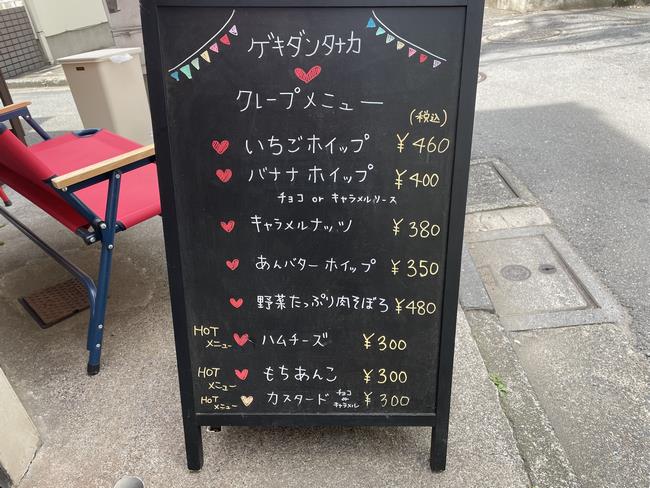 ゲキダンタナカ
クレープメニュー
(税込)
いちごホイップ ¥460
バナナホイップ ¥400
チョコ or キャラメルソース
キャラメルナッツ ¥380
あんバターホイップ ¥350
野菜たっぷり肉そぼろ ¥480
HOTメニュー ハムチーズ ¥300
HOTメニュー もちあんこ ¥300
HOTメニュー カスタード チョコ or キャラメル ¥300